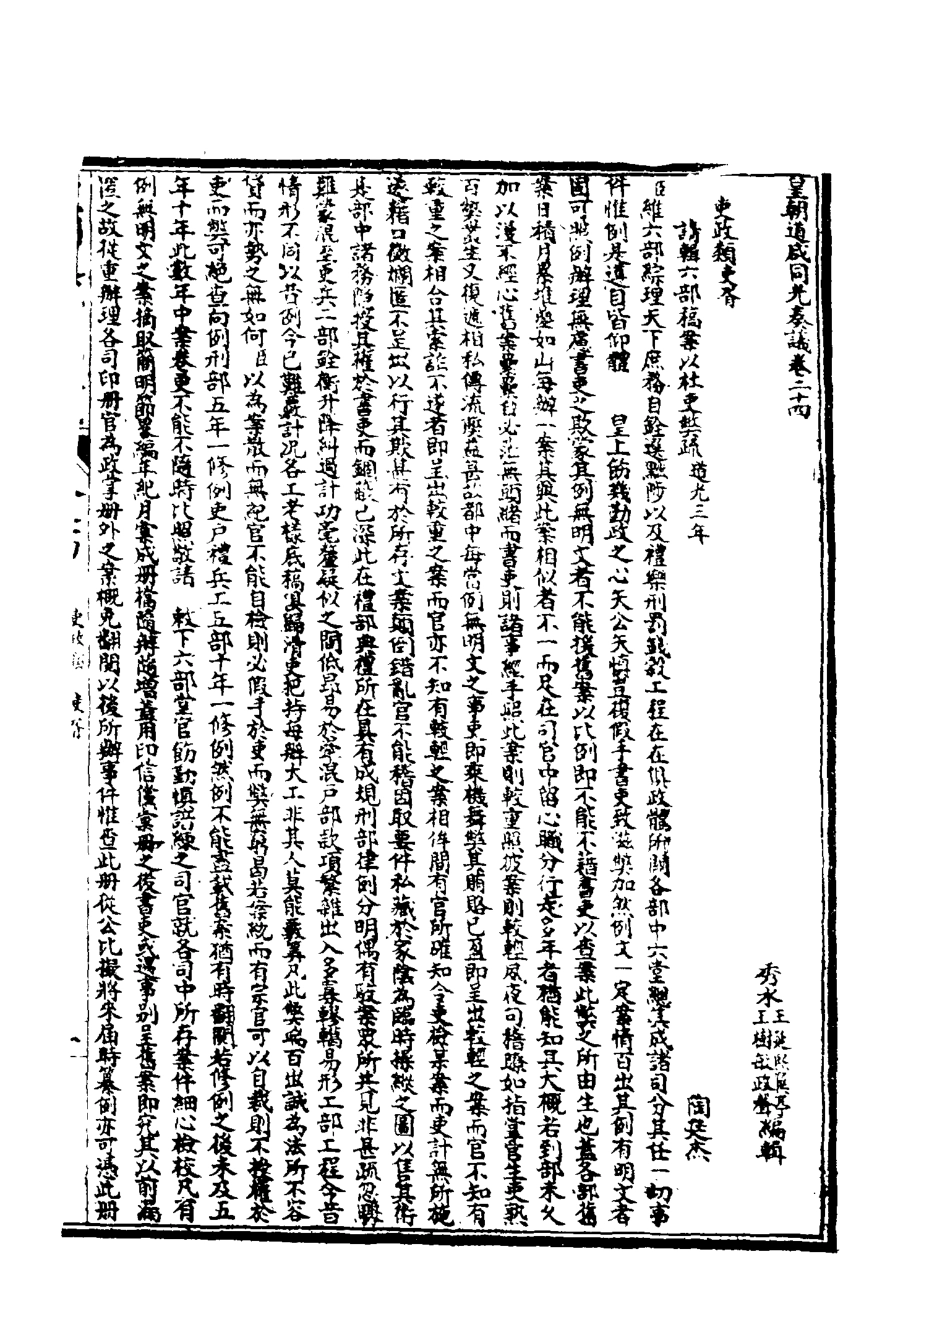 皇朝道咸同光奏議卷二十四
秀水王延熙
王樹敏政聲編輯
吏政類吏胥
請輯六部稿案以杜吏弊疏 道光三年 陶廷杰
臣維六部綜理天下庶務自銓選黜陟以及禮樂刑罰錢穀工程在在俱政體所關各部中六堂總其成諸司分其任一切事
件惟例是遵自皆仰體 皇上飭幾勤政之心矢公矢慎豈復假手書吏致滋弊加然例文一定案情百出其例有明文者
固可照例辦理無虞書吏之欺蒙其例無明文者不能援舊案以比例即不能不藉書吏以查案此弊之所由生也蓋各部舊
案日積月累堆壘如山每辦一案其與此案相似者不一而足在司官中留心職分行走多年者猶能知其大概若到部未久
加以漫不經心舊案纍纍自必茫無頭緒而書吏則諸事經手照此案則較重照彼案則較輕夙夜司稽瞭如指掌官生吏熟
百弊叢生又復遞相私傳流弊益甚故部中每當例無明文之事吏即乘機舞弊其賄賂已盈即呈出較輕之案而官不知有
較重之案相合其索詐不遂者即呈出較重之案而官亦不知有較輕之案相侔間有官所確知令吏檢某案而吏計無所施
遂藉口微爛匿不呈出以行其欺甚有於所存文案顛倒錯亂官不能稽因取要件私藏於家陰為臨時操縱之圖以售其術
其部中諸務隱授其權於書吏而錮蔽已深此在禮部典禮所在具有成規刑部律例分明偶有駁案眾所共見非甚疏忽興
難蒙混至吏兵二部銓衡升降糾過計功毫釐疑似之間低昂易於牽混戶部款項繁雜出入多寡轇轕易形工部工程今昔
情形不同以昔例今已難覈計況各工老樣底稿俱歸滑吏把持每辦大工非其人莫能覈算凡此弊竇百出誠為法所不容
貸而亦勢之無如何 臣以為案散而無紀官不能自檢則必假手於吏而弊無窮曷若案統而有宗官可以自裁則不授權於
吏而弊可絕查向例刑部五年一修例吏戶禮兵工五部十年一修例然例不能盡載舊案猶有時翻閱若修例之後未及五
年十年此數年中案卷更不能不隨時比照敬請 敕下六部堂官飭勤慎諳練之司官就各司中所存案件細心檢校凡有
例無明文之案摘取簡明節畧編年紀月彙成冊檔隨辦隨增蓋用印信儻彙冊之後書吏或遇事別呈舊案即究其以前漏
匿之故從重辦理各司印冊官為政掌冊外之案概免翻閱以後所辦事件惟查此冊從公比擬將來屆時纂例亦可憑此冊